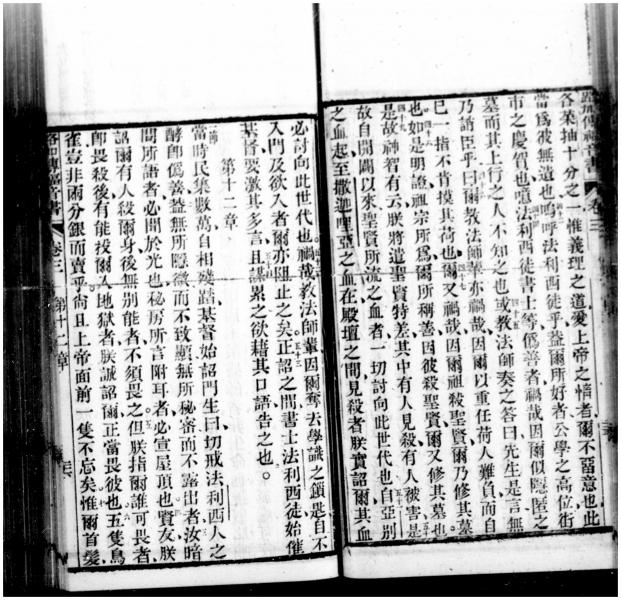 各菜抽十分之一惟義理之道愛上帝之情者爾不留意也此
當爲被無遺也嗚呼法利西徒乎蓋爾所好者公學之高位街
市之慶賀也噫法利西徒書士等僞善者禍哉因爾似隱匿之
墓而其上行之人不知之也或教法師奏之答曰先生是言無
乃謗臣乎曰爾教法師輩亦禍哉因爾以重任荷人難負而自
己一指不肯摸其荷也爾又禍哉因爾祖殺聖賢爾乃修其墓
也如是明證祖宗所爲爾所稱善因彼殺聖賢爾又修其墓也
是故神智有云朕將遣聖賢特差其中有人見殺有人被害是
故自開闢以來聖賢所流之血者一切討向此世代也自亞別
之血起至撒迦哩亞之血在殿壇之間見殺者朕實語爾其血
必討向此世代也禍哉教法師輩因爾奪去學識之鎖是自不
入門及欲入者爾亦阻止之矣正語之間書士法利西徒始催
基督要激其多言且謀累之欲藉其口語告之也
第十二章
當時民集數萬自相殘踏基督始語門生曰切戒法利西人之
酵卽僞善蓋無所隱微而不致顯無所秘密而不露出者汝暗
間所語者必聞於光也秘房所言附耳者必宣屋頂也賢友朕
語爾有人殺爾身後無別能者不須畏之但朕指爾誰可畏者
卽畏殺後有能投爾入地獄者朕誠語爾正當畏彼也五隻鳥
雀豈非兩分銀而賣乎尚且上帝面前一隻不忘矣惟爾首髮
卷三 第十二章